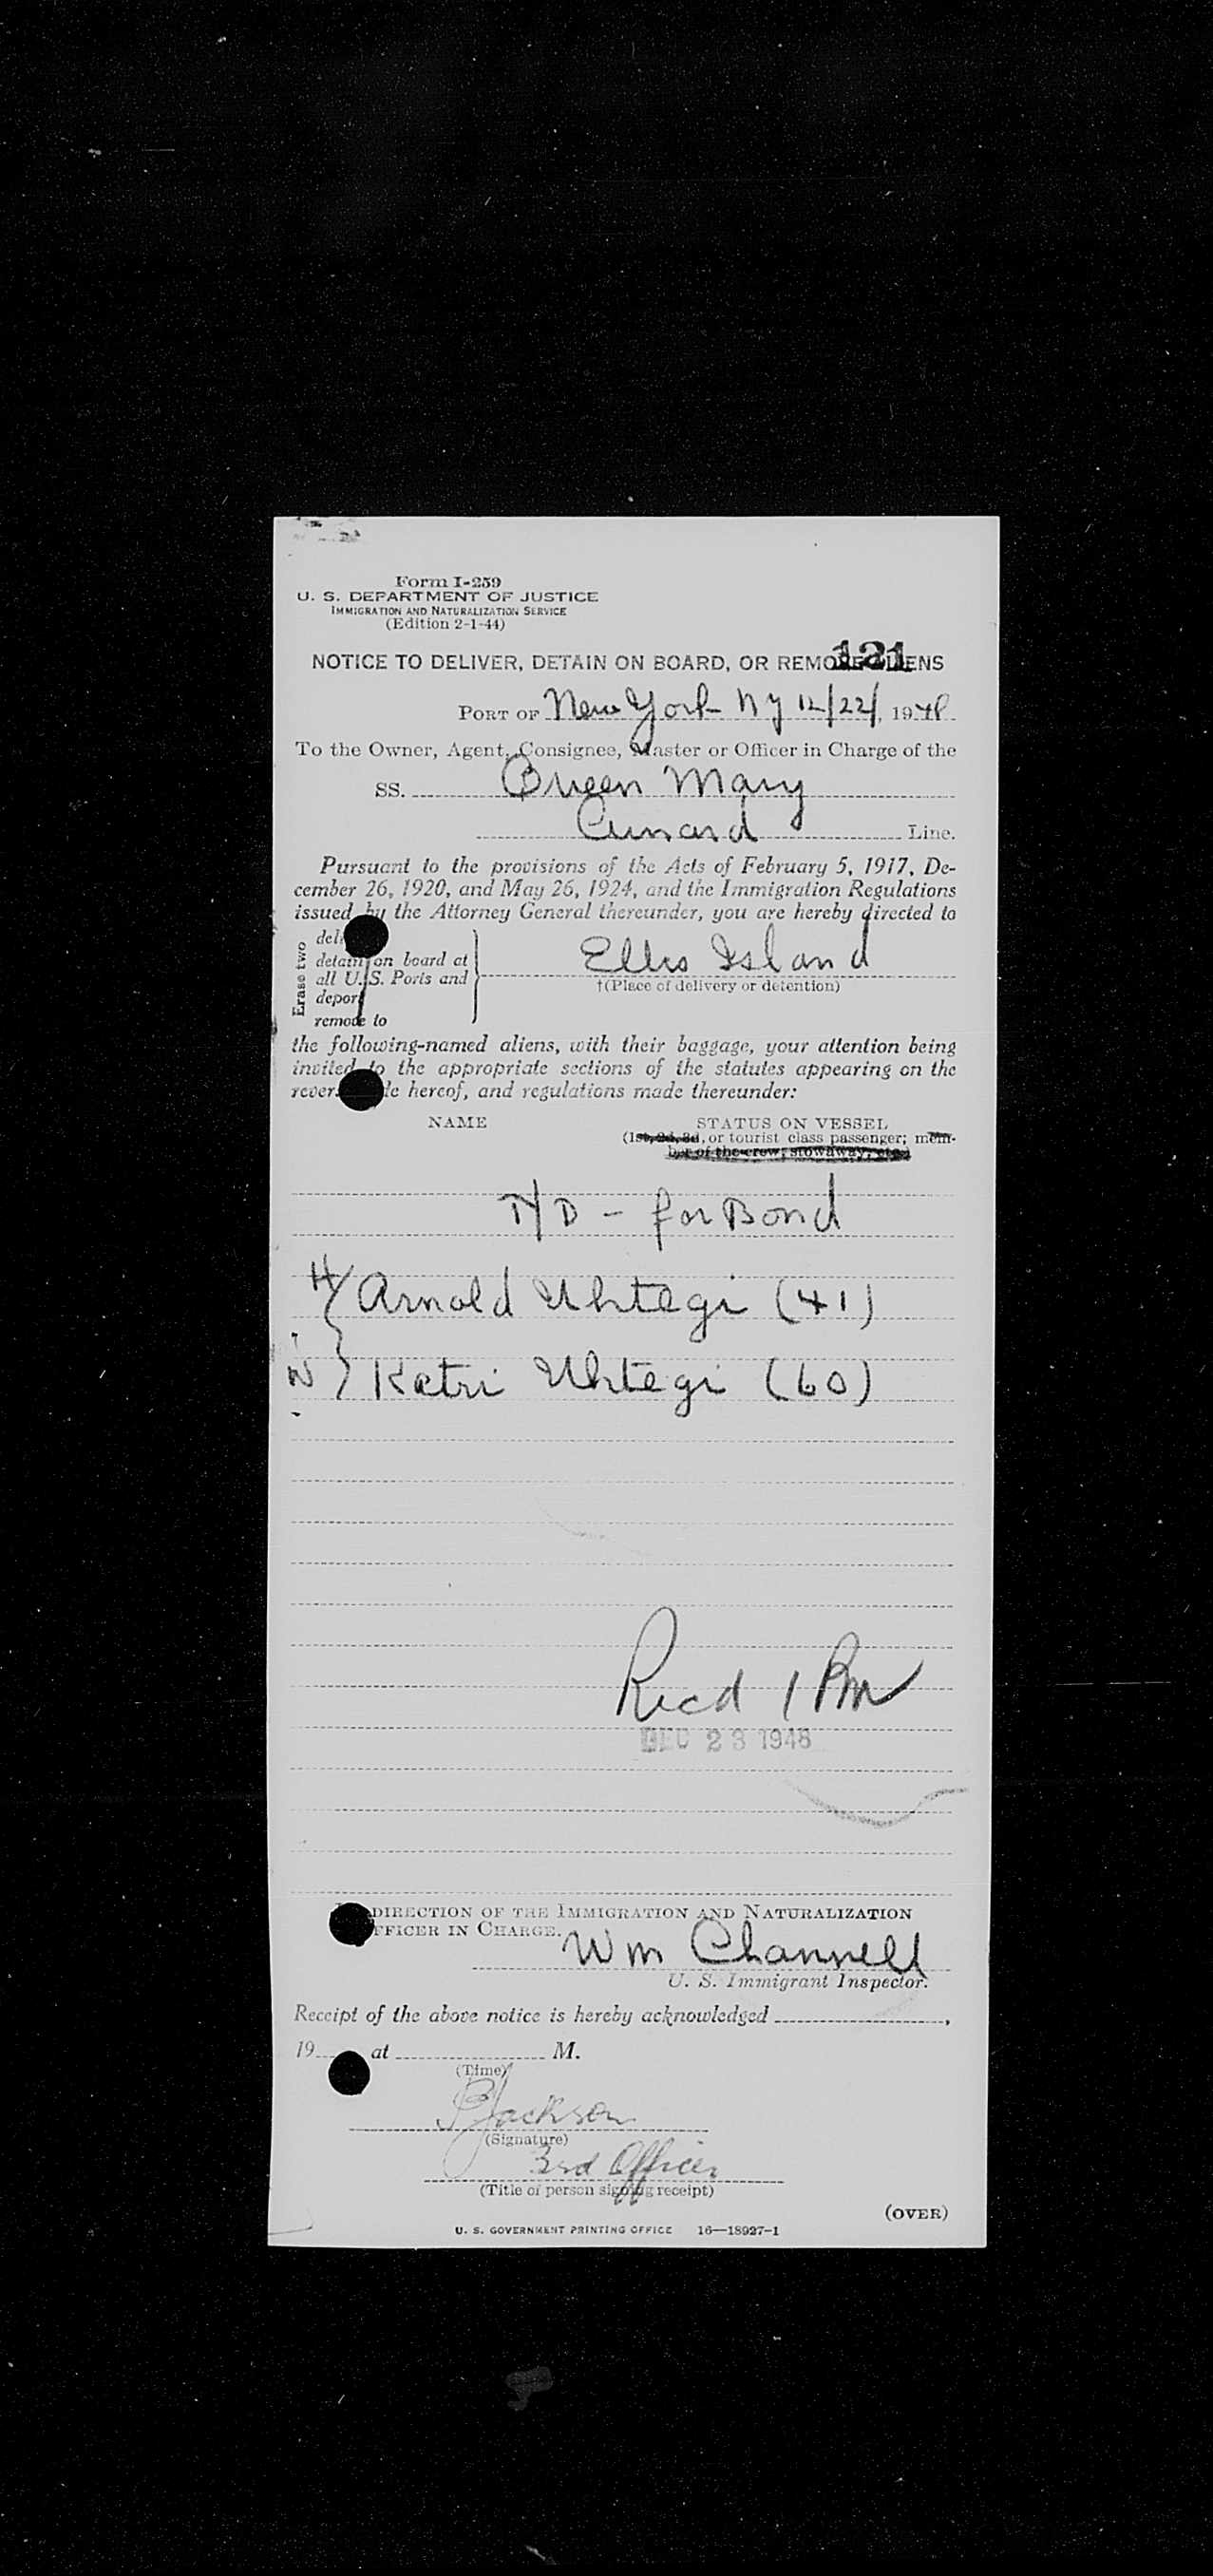 Form I-259
U. S. DEPARTMENT OF JUSTICE
IMMIGRATION AND NATURALIZATION SERVICE
(Edition 2-1-44)
121
NOTICE TO DELIVER, DETAIN ON BOARD, OR REMOVE ALIENS
PORT OF New York NY 12/22/, 1948
To the Owner, Agent, Consignee, Master or Officer in Charge of the
SS. Queen Mary
Cunard Line.
Pursuant to the provisions of the Acts of February 5, 1917, De-
cember 26, 1920, and May 26, 1924, and the Immigration Regulations
issued by the Attorney General thereunder, you are hereby directed to
Erase two
detain on board at
all U. S. Ports and
deport
remove to
Ellis Island
†(Place of delivery or detention)
the following-named aliens, with their baggage, your attention being
invited to the appropriate sections of the statutes appearing on the
hereof, and regulations made thereunder:
NAME STATUS ON VESSEL
(1st, 2d, 3d, or tourist class passenger; mem-
ber of the crew; stowaway, etc.)
T/D - for Bond
H Arnold Uhtegi (41)
W Katri Uhtegi (60)
Recd 1 PM
DEC 23 1948
DIRECTION OF THE IMMIGRATION AND NATURALIZATION
OFFICER IN CHARGE.
Wm Channell
U. S. Immigrant Inspector.
Receipt of the above notice is hereby acknowledged ,
19 at M.
(Time)
Jackson
(Signature)
3rd Officer
(Title of person signing receipt)
(OVER)
U. S. GOVERNMENT PRINTING OFFICE 16—18927-1